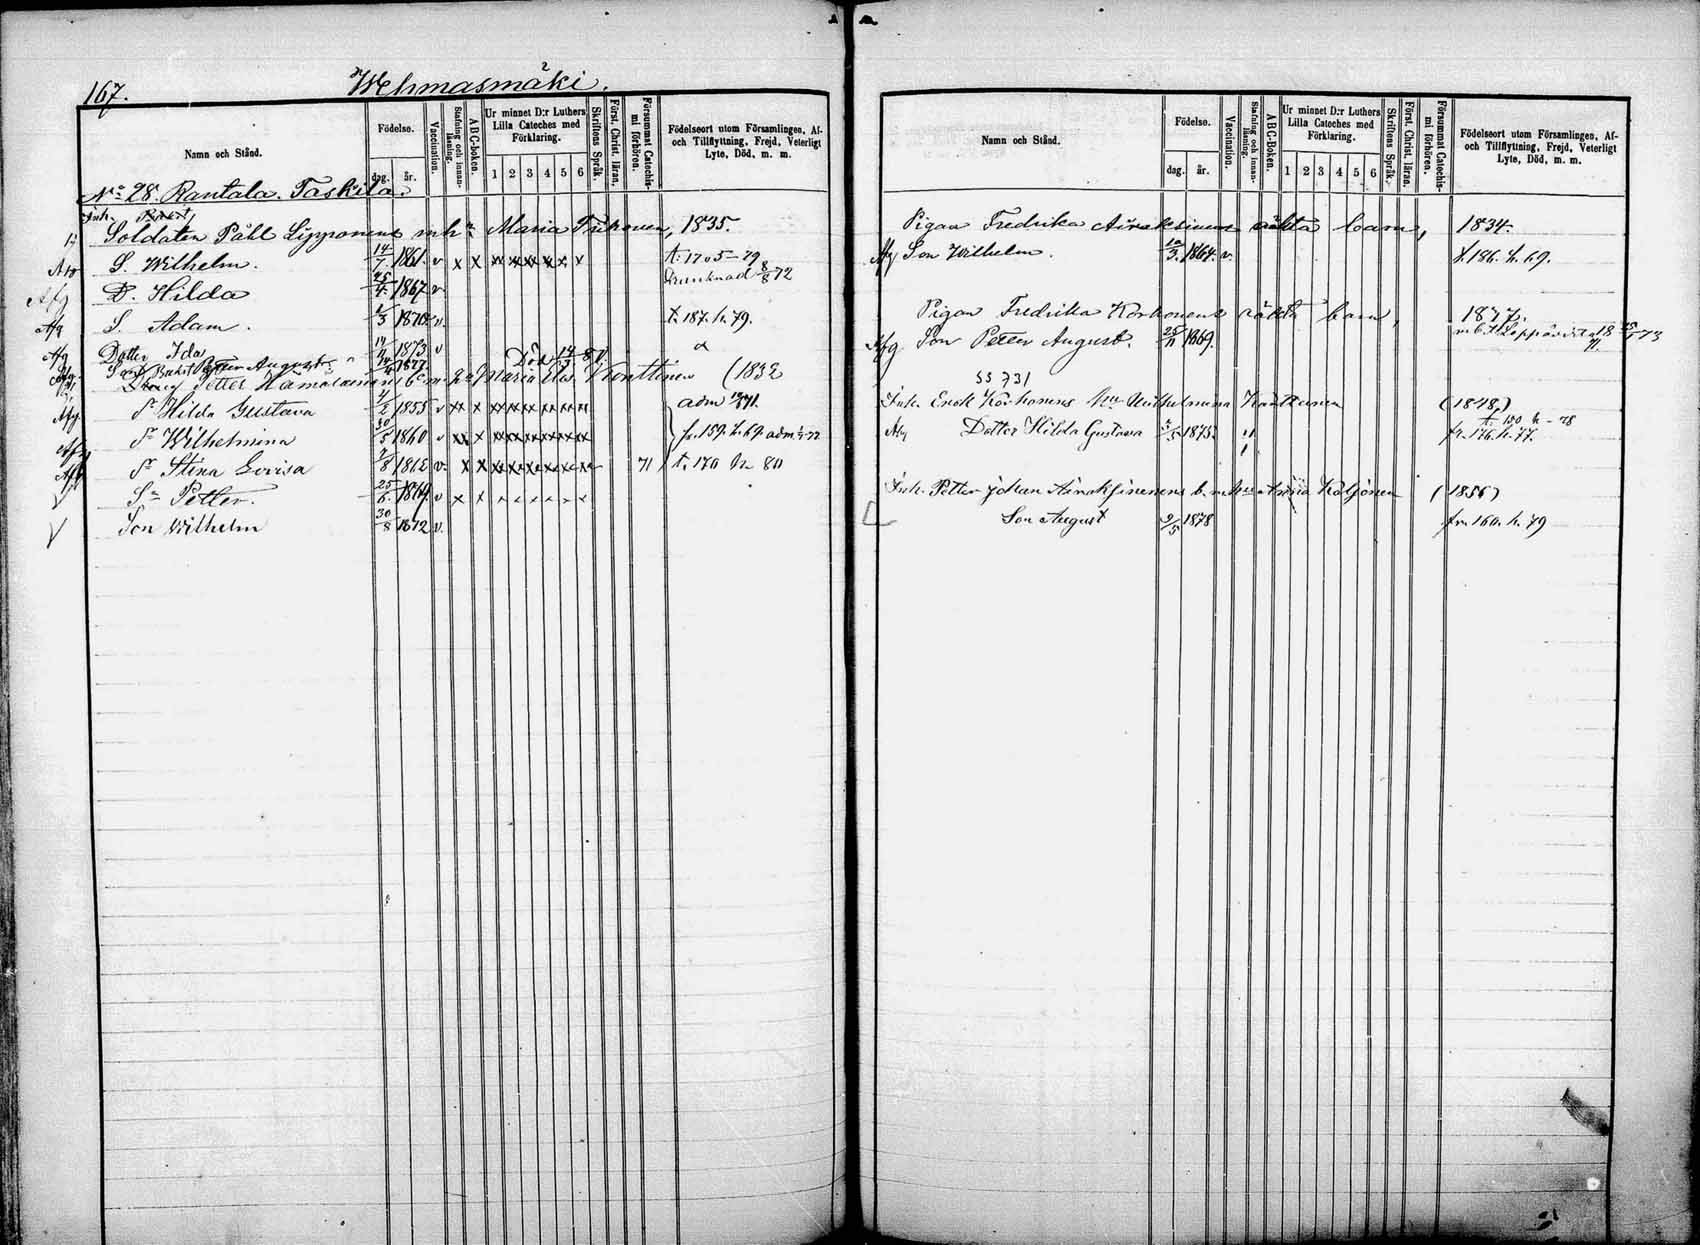 167.
Wehmasmäki.
Namn och Stånd.
Födelse.
dag.
år.
Vaccination.
Stafning och innan-läsning.
ABC-boken.
Ur minnet D:r Luthers
Lilla Cateches med
Förklaring.
1 2 3 4 5 6
Skriftens Språk.
Först. Christ. läran.
Försummat Catechis-mi förhören.
Födelseort utom Församlingen, Af-
och Tillflyttning, Frejd, Veterligt
Lyte, Död, m. m.
No 28. Rantala. Taskila.
Inh.
Soldaten Påhl Lipponens m hu Maria 1835.
S. Wilhelm. 14/7 1861. v
t. 170 5-79
D. Hilda 25/4 1867 v
Drunknad 8/8 72
Afg S. Adam. 1870 v
t. 187. h. 79.
Afg Dotter Ida 1873. v
Petter August Död 14/3 80
Petter Hämäläinens m hu Maria Elis. Konttinen (1832
Afg. Dr Hilda Gustava 4/2 1855 v
adm 71.
Dr Wilhelmina 30/5 1860 v
fr. 159. h. 69. adm. 72
Dr Stina Lovisa 7/8 1862 v 71 t. 170 h 80
Sn Petter. 25/6 1869 v
Son Wilhelm 30/8 1872 v.
Namn och Stånd.
Födelse.
dag.
år.
Vaccination.
Stafning och innan-läsning.
ABC-boken.
Ur minnet D:r Luthers
Lilla Cateches med
Förklaring.
1 2 3 4 5 6
Skriftens Språk.
Först. Christ. läran.
Försummat Catechis-mi förhören.
Födelseort utom Församlingen, Af-
och Tillflyttning, Frejd, Veterligt
Lyte, Död, m. m.
Pigan Fredrika Airaksinens oäkta barn, 1834.
Afg Son Wilhelm. 1864. v.
t. 186. h. 69.
Pigan Fredrika Korhonens oäkta barn,
Afg Son Petter August. 25/11 1869.
m. b. t. Leppävirta 73
SS 731
Inh. Enok Korhonens hu Wilhelmina (1848)
t. 150 h - 78
Afg Dotter Hilda Gustava 1875.
fr. 176. h. 77.
Inh. Petter Johan Airaksinens b. m hu (1856)
Son August 9/5 1878
fr. 160. h. 79